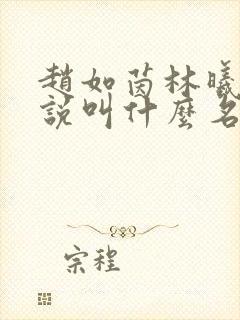 趙如茵林曦
說叫什麼名
宗程